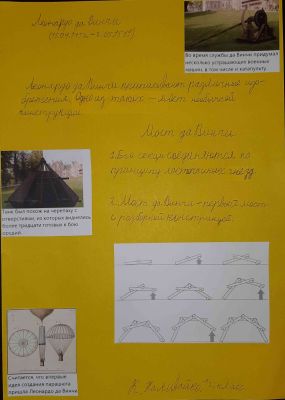 Леонардо да Винчи
(15.04.1452 – 2.05.1519)
Во время службы да Винчи придумал
несколько устрашающих военных
машин, в том числе и катапульту.
Леонардо да Винчи приписывают различные изо-
бретения. Одно из таких – мост необычной
конструкции.
Мост да Винчи
1. Его секции соединяются по
принципу ласточкиных гнёзд
2. Мост да Винчи – первый мост
с разборной конструкцией.
Танк был похож на черепаху с
отверстиями, из которых виднелись
более тридцати готовых к бою
орудий.
Считается, что впервые
идея создания парашюта
пришла Леонардо да Винчи
класс